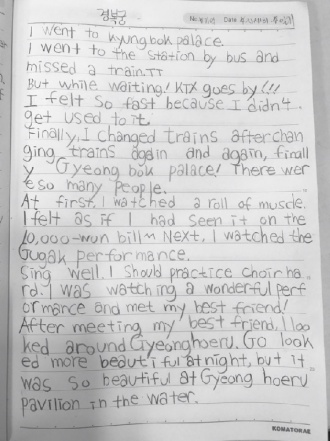 경복궁
No. Date
I went to kyungbok palace.
I went to the station by bus and
missed a train.ㅠㅠ
But while waiting! KTX goes by!!!
I felt so fast because I didn't
get used to it.
Finally, I changed trains after chan
ging trains again and again, finall
y Gyeong bok palace! There wer
e so many people.
At first, I watched a roll of muscle.
I felt as if I had seen it on the
10,000-won bill~ Next, I watched the
Gugak performance.
Sing well. I should practice choir ha
rd. I was watching a wonderful perf
ormance and met my best friend!
After meeting my best friend, I loo
ked around Gyeonghoeru. Go look
ed more beautiful at night, but it
was so beautiful at Gyeong hoeru
pavilion in the water.
KOMATORAE